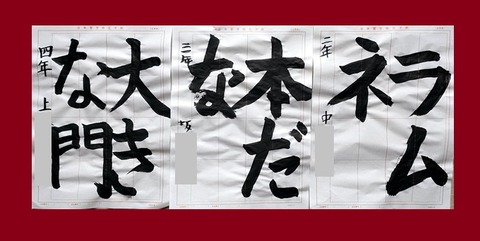 ラム
ネ
二年 中
本だ
な
三年 坂
大き
な門
四年 上